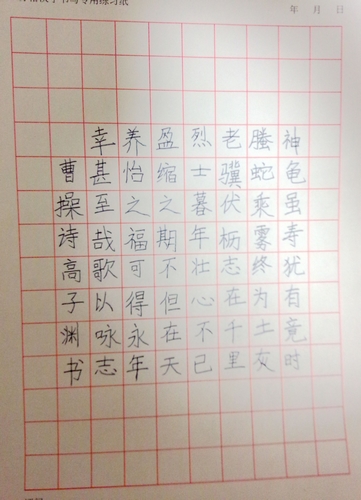 年 月 日
神龟虽寿犹有竟时
螣蛇乘雾终为土灰
老骥伏枥志在千里
烈士暮年壮心不已
盈缩之期不但在天
养怡之福可得永年
幸甚至哉歌以咏志
曹操诗高子渊书